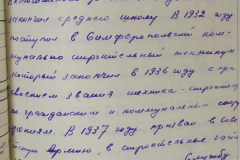 закончил среднего школу. В 1932 году
поступил в Симферопольский ком-
мунально строительный техникум
который закончил в 1936 году с при-
своением звания техника-строителя
по гражданским и коммунальн соору-
жениям. В 1937 году призван в Сове
Армию, в строительные
Службу